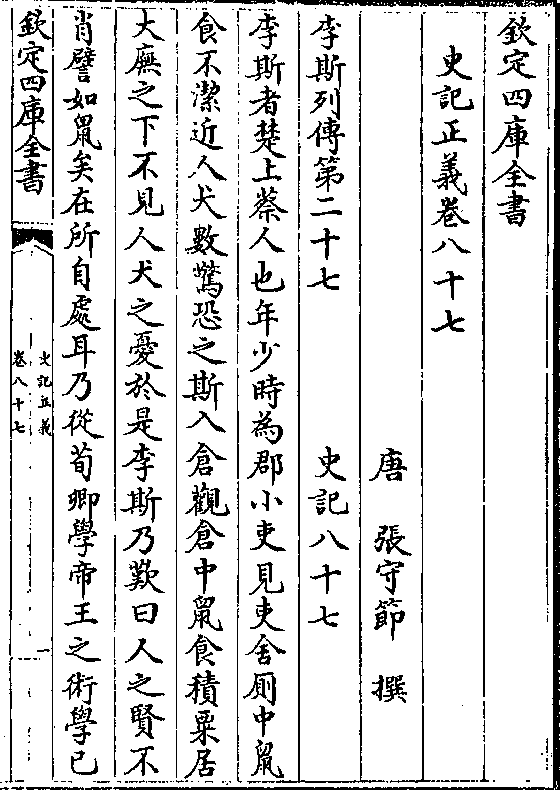 欽定四庫全書
史記正義卷八十七
唐 張守節 撰
李斯列傳第二十七 史記八十七
李斯者楚上蔡人也年少時為郡小吏見吏舍厠中鼠
食不潔近人犬數驚恐之斯入倉觀倉中鼠食積粟居
大廡之下不見人犬之憂於是李斯乃歎曰人之賢不
肖譬如鼠矣在所自處耳乃從荀卿學帝王之術學已
欽定四庫全書
史記正義
卷八十七
一